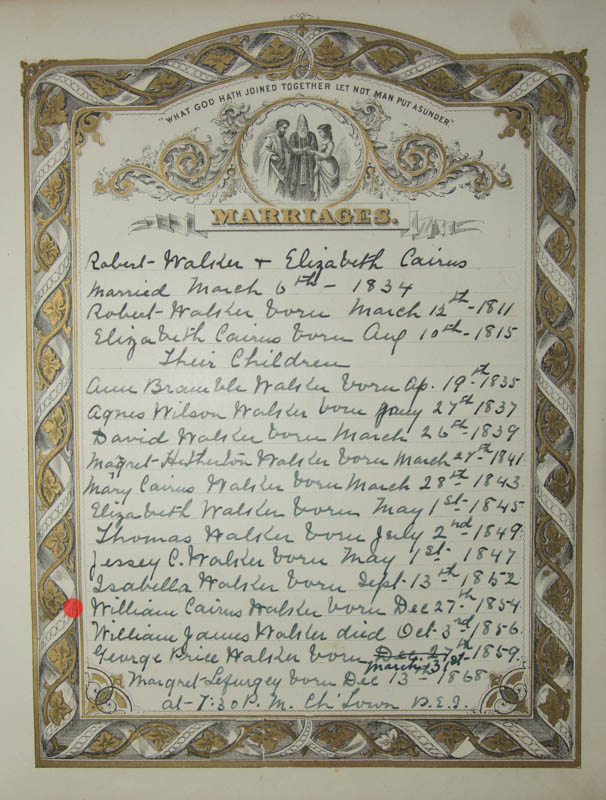 "WHAT GOD HATH JOINED TOGETHER LET NOT MAN PUT ASUNDER."
MARRIAGES.
Robert Walker + Elizabeth Cairns
Married March 6th - 1834
Robert Walker born March 12th - 1811
Elizabeth Cairns born Aug 10th - 1815
Their Children
Ann Bramble Walker born Ap. 19th 1835
Agnes Wilson Walker born Jany 27th 1837
David Walker born March 26th - 1839
Magret Walker born March 1841
Mary Cairns Walker born March 28th 1843
Elizabeth Walker born May 1st - 1845
Thomas Walker born July 2nd - 1849
Jessey C. Walker born May 1st - 1847
Isabella Walker born Sept 13th 1852
William Cairns Walker born Dec 27th - 1854
William James Walker died Oct 3rd / 1856
George Price Walker born Dec. 27th - 1859
March 31st
Margret Lefurgey born Dec 13th - 1868
at - 7:30 P.M. Ch'Town P.E.I.